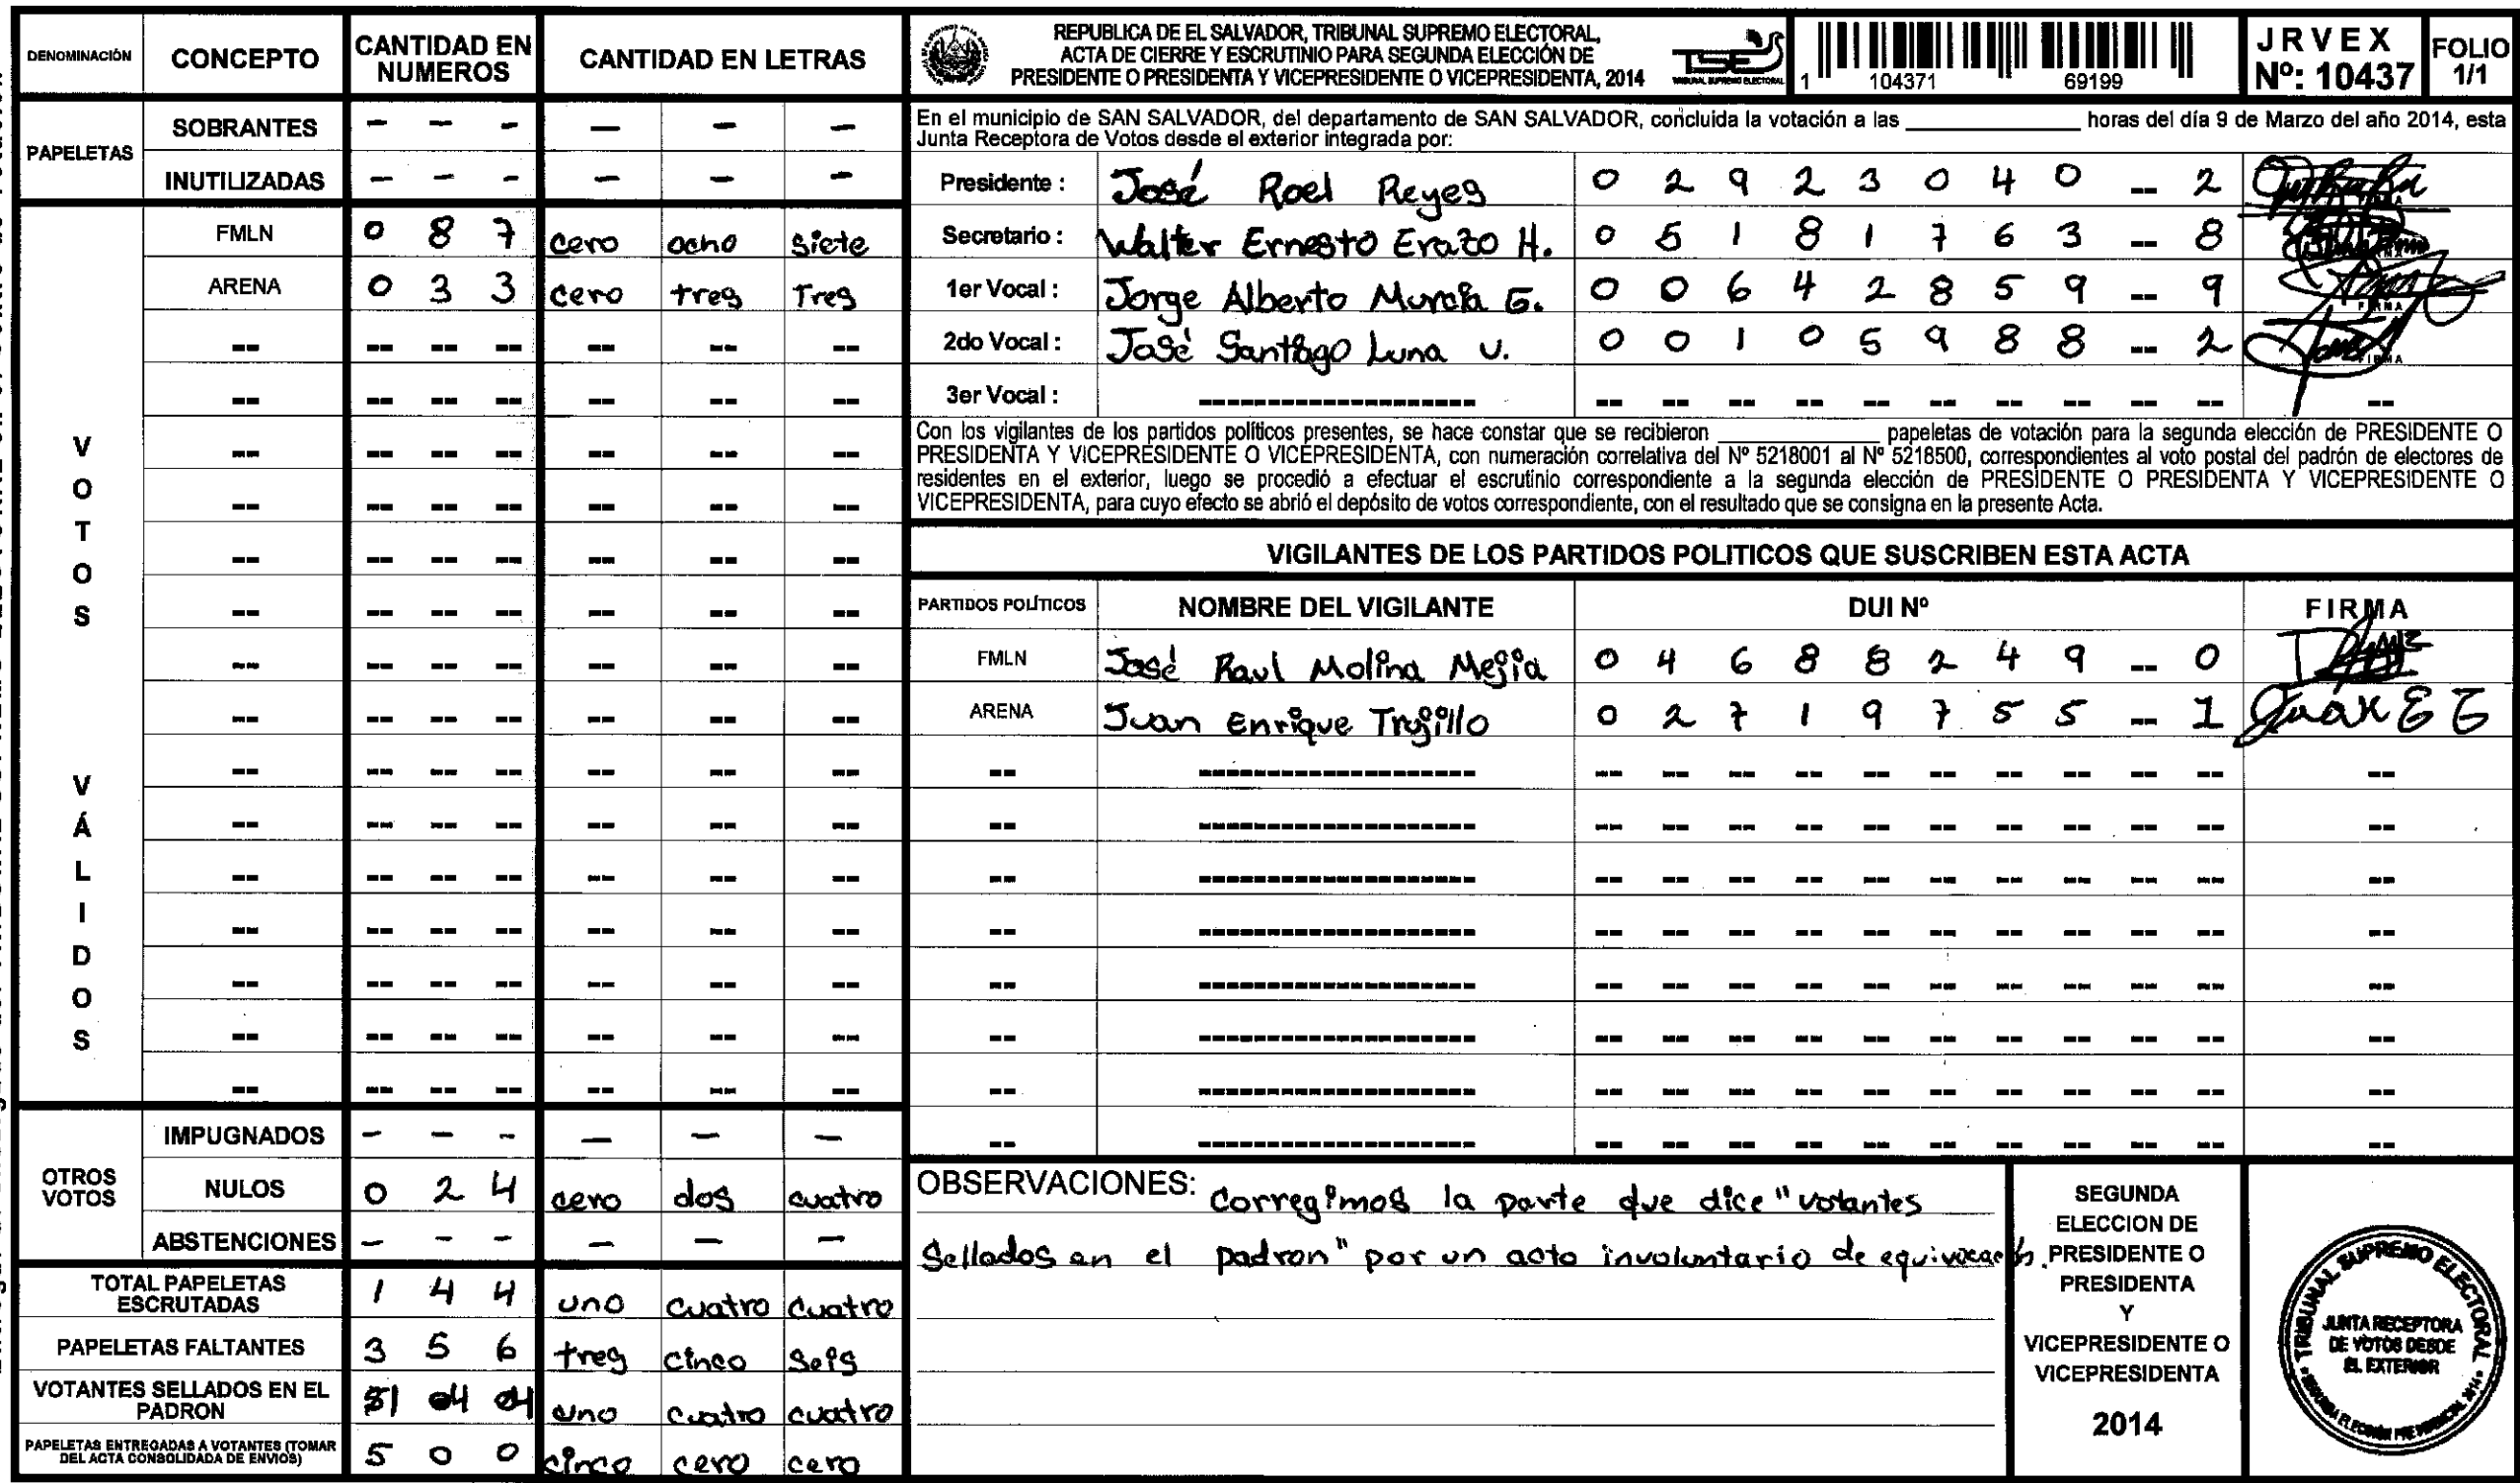 DENOMINACIÓN CONCEPTO CANTIDAD EN NUMEROS CANTIDAD EN LETRAS
PAPELETAS
SOBRANTES - - - - - -
INUTILIZADAS - - - - - -
VOTOS VÁLIDOS
FMLN 0 8 7 cero ocho siete
ARENA 0 3 3 cero tres Tres
OTROS VOTOS
IMPUGNADOS - - - - - -
NULOS 0 2 4 cero dos cuatro
ABSTENCIONES - - - - - -
TOTAL PAPELETAS ESCRUTADAS 1 4 4 uno cuatro cuatro
PAPELETAS FALTANTES 3 5 6 tres cinco seis
VOTANTES SELLADOS EN EL PADRON 1 4 4 uno cuatro cuatro
PAPELETAS ENTREGADAS A VOTANTES (TOMAR DEL ACTA CONSOLIDADA DE ENVIOS) 5 0 0 cinco cero cero
REPUBLICA DE EL SALVADOR, TRIBUNAL SUPREMO ELECTORAL,
ACTA DE CIERRE Y ESCRUTINIO PARA SEGUNDA ELECCIÓN DE
PRESIDENTE O PRESIDENTA Y VICEPRESIDENTE O VICEPRESIDENTA, 2014
TSE
TRIBUNAL SUPREMO ELECTORAL
1 104371 69199
JRVEX Nº: 10437
FOLIO 1/1
En el municipio de SAN SALVADOR, del departamento de SAN SALVADOR, concluida la votación a las ____ horas del día 9 de Marzo del año 2014, esta
Junta Receptora de Votos desde el exterior integrada por:
Presidente : José Roel Reyes 0 2 9 2 3 0 4 0 -- 2
Secretario : Walter Ernesto Erazo H. 0 5 1 8 1 7 6 3 -- 8
1er Vocal : Jorge Alberto Murcia G. 0 0 6 4 2 8 5 9 -- 9
2do Vocal : José Santiago Luna V. 0 0 1 0 5 9 8 8 -- 2
3er Vocal :
Con los vigilantes de los partidos políticos presentes, se hace constar que se recibieron ____ papeletas de votación para la segunda elección de PRESIDENTE O
PRESIDENTA Y VICEPRESIDENTE O VICEPRESIDENTA, con numeración correlativa del Nº 5218001 al Nº 5218500, correspondientes al voto postal del padrón de electores de
residentes en el exterior, luego se procedió a efectuar el escrutinio correspondiente a la segunda elección de PRESIDENTE O PRESIDENTA Y VICEPRESIDENTE O
VICEPRESIDENTA, para cuyo efecto se abrió el depósito de votos correspondiente, con el resultado que se consigna en la presente Acta.
VIGILANTES DE LOS PARTIDOS POLITICOS QUE SUSCRIBEN ESTA ACTA
PARTIDOS POLÍTICOS NOMBRE DEL VIGILANTE DUI Nº FIRMA
FMLN José Raul Molina Mejia 0 4 6 8 8 2 4 9 -- 0
ARENA Juan Enrique Trujillo 0 2 7 1 9 7 5 5 -- 1 Juan E T
OBSERVACIONES: Corregimos la parte que dice "votantes
Sellados en el padron" por un acto involuntario de equivocación.
SEGUNDA
ELECCION DE
PRESIDENTE O
PRESIDENTA
Y
VICEPRESIDENTE O
VICEPRESIDENTA
2014
TRIBUNAL SUPREMO ELECTORAL
JUNTA RECEPTORA
DE VOTOS DESDE
EL EXTERIOR